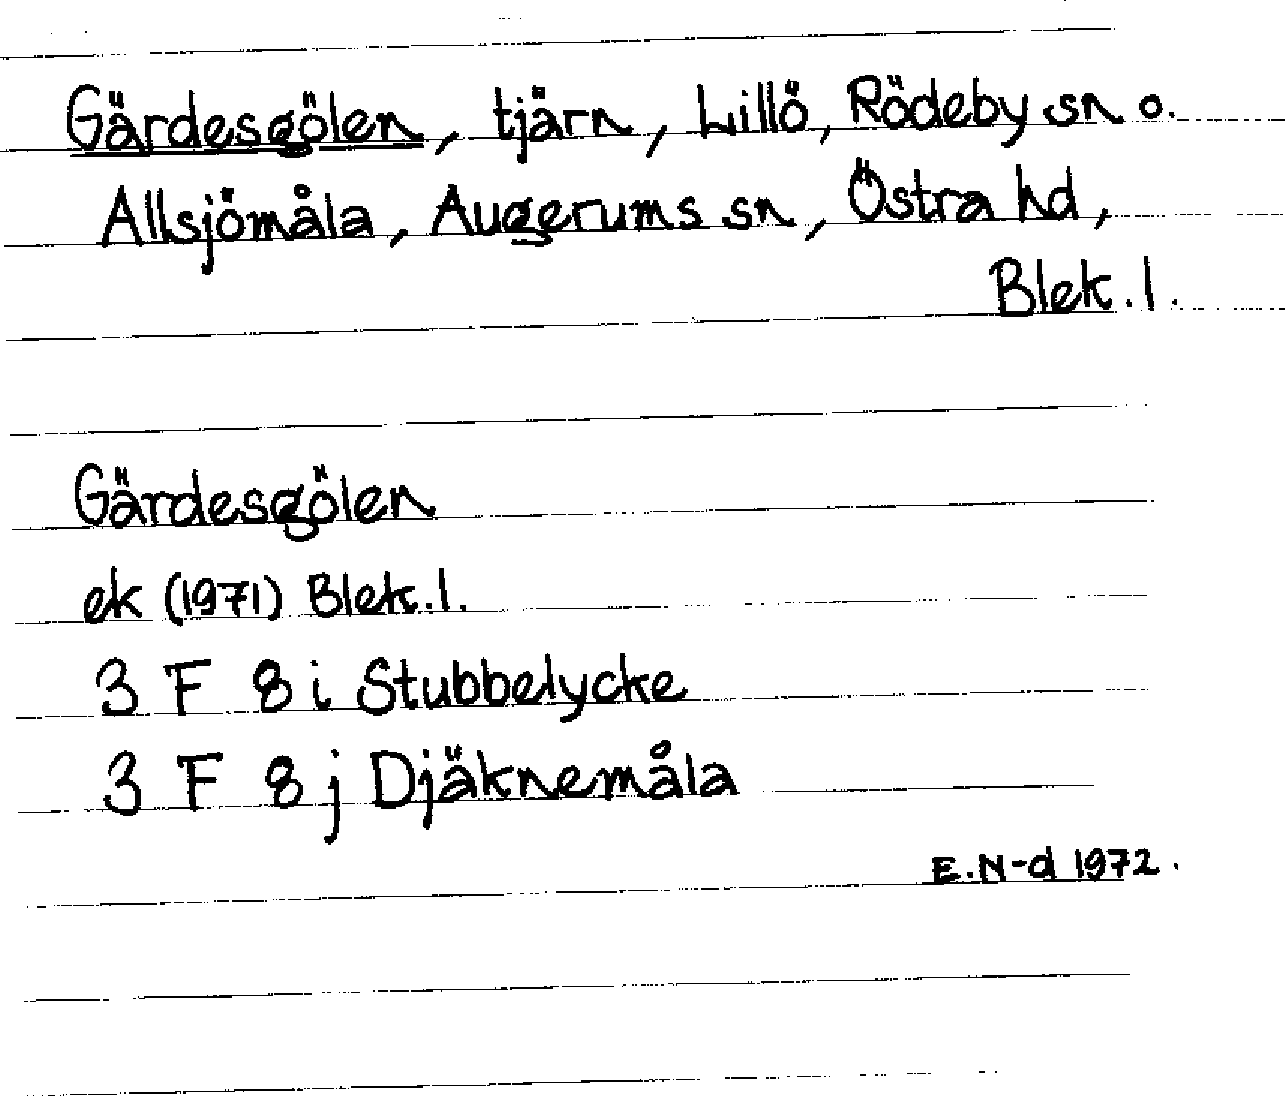 Gärdesgölen, tjärn, Lillö, Rödeby sn o.
Allsjömåla, Augerums sn, Östra hd,
Blek. l.
Gärdesgölen
ek (1971) Blek. l.
3 F 8 i Stubbelycke
3 F 8 j Djäknemåla
E.N-d 1972.